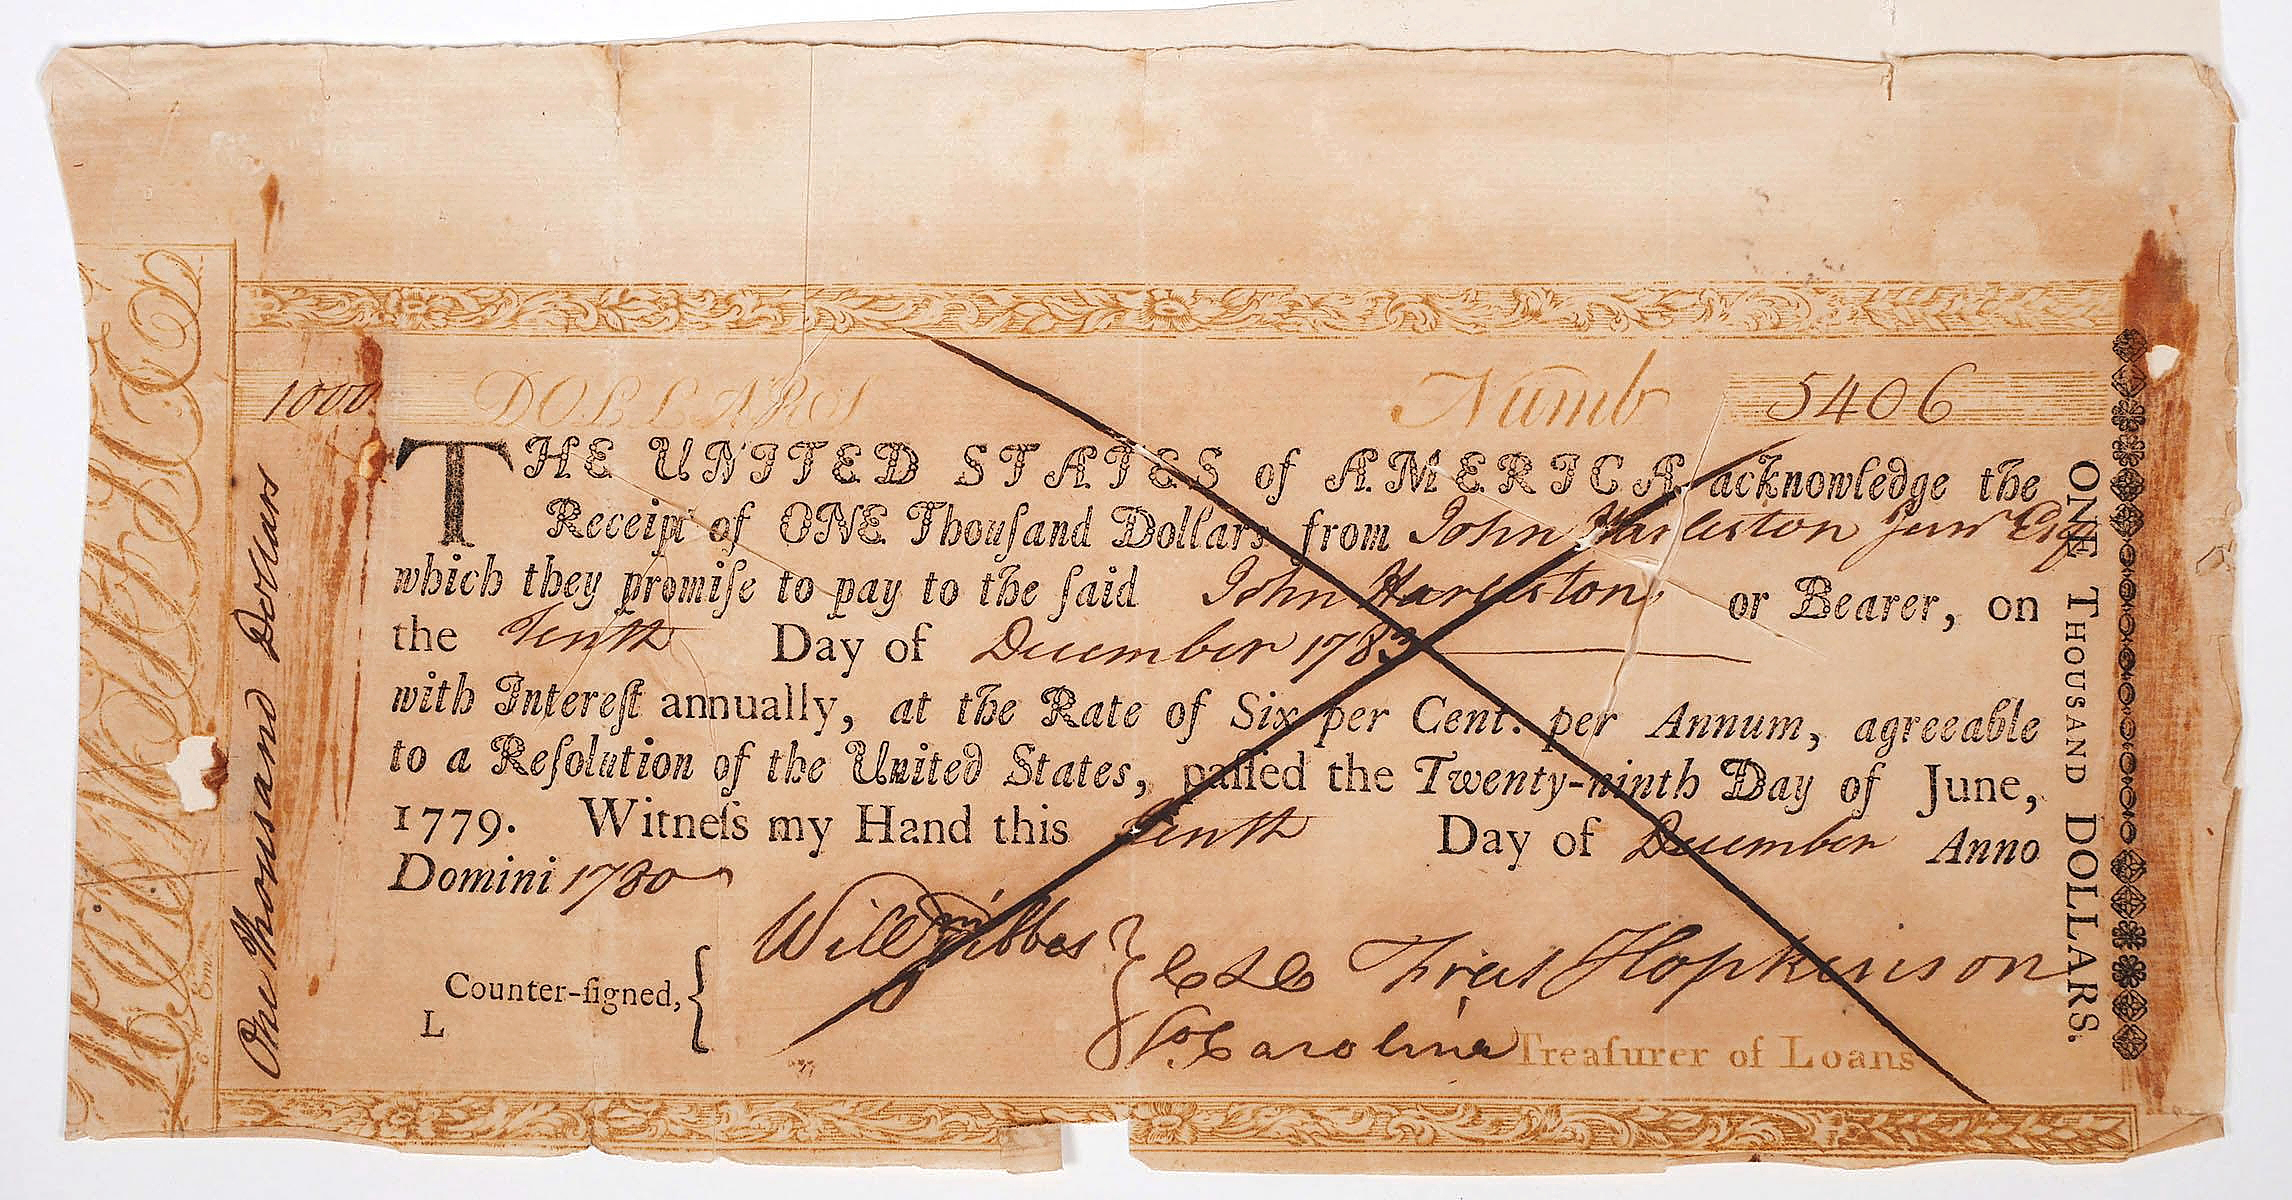 1000 DOLLARS Numb 5406
THE UNITED STATES of AMERICA acknowledge the
Receipt of ONE Thouſand Dollars from John Harleston Junr Esq
which they promiſe to pay to the ſaid John Harleston or Bearer, on
the Tenth Day of December 1783
with Intereſt annually, at the Rate of Six per Cent. per Annum, agreeable
to a Reſolution of the United States, paſſed the Twenty-ninth Day of June,
1779. Witneſs my Hand this Tenth Day of December Anno
Domini 1780
Counter-ſigned, { Will Gibbes } C L O Fras Hopkinson
L So Carolina Treaſurer of Loans
One Thousand Dollars
ONE THOUSAND DOLLARS.